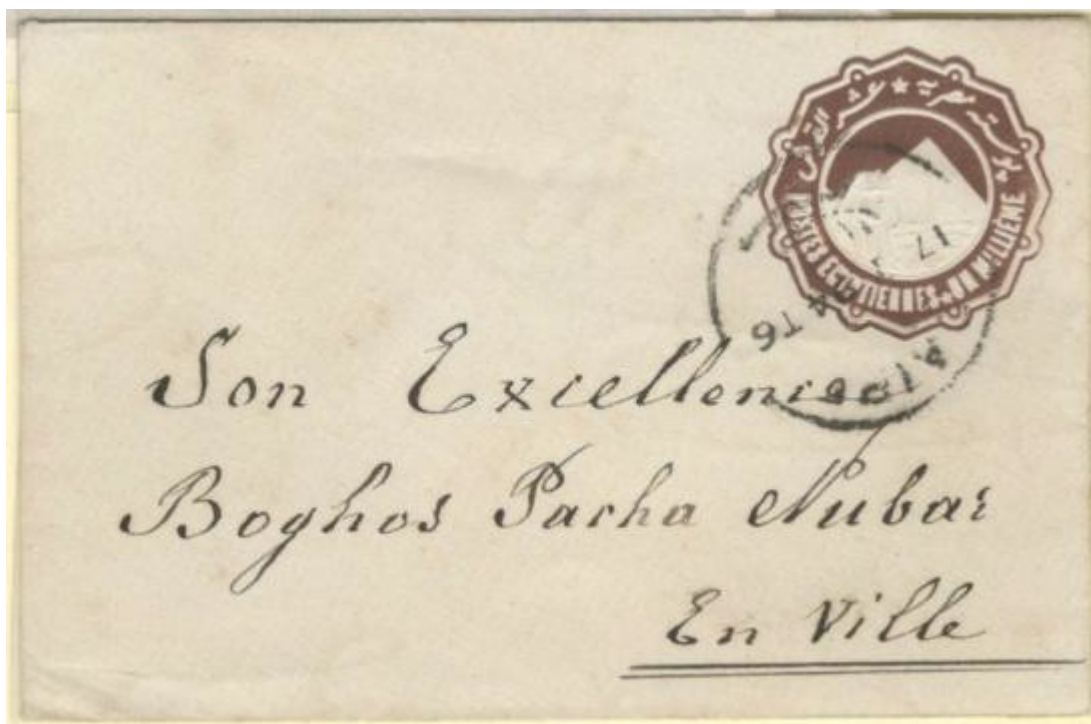 بوستة مصرية ★ عشر القرش
POSTES EGYPTIENNES ★ UN MILLIEME
17
T6
Son Excellence
Boghos Pacha Nubar
En Ville